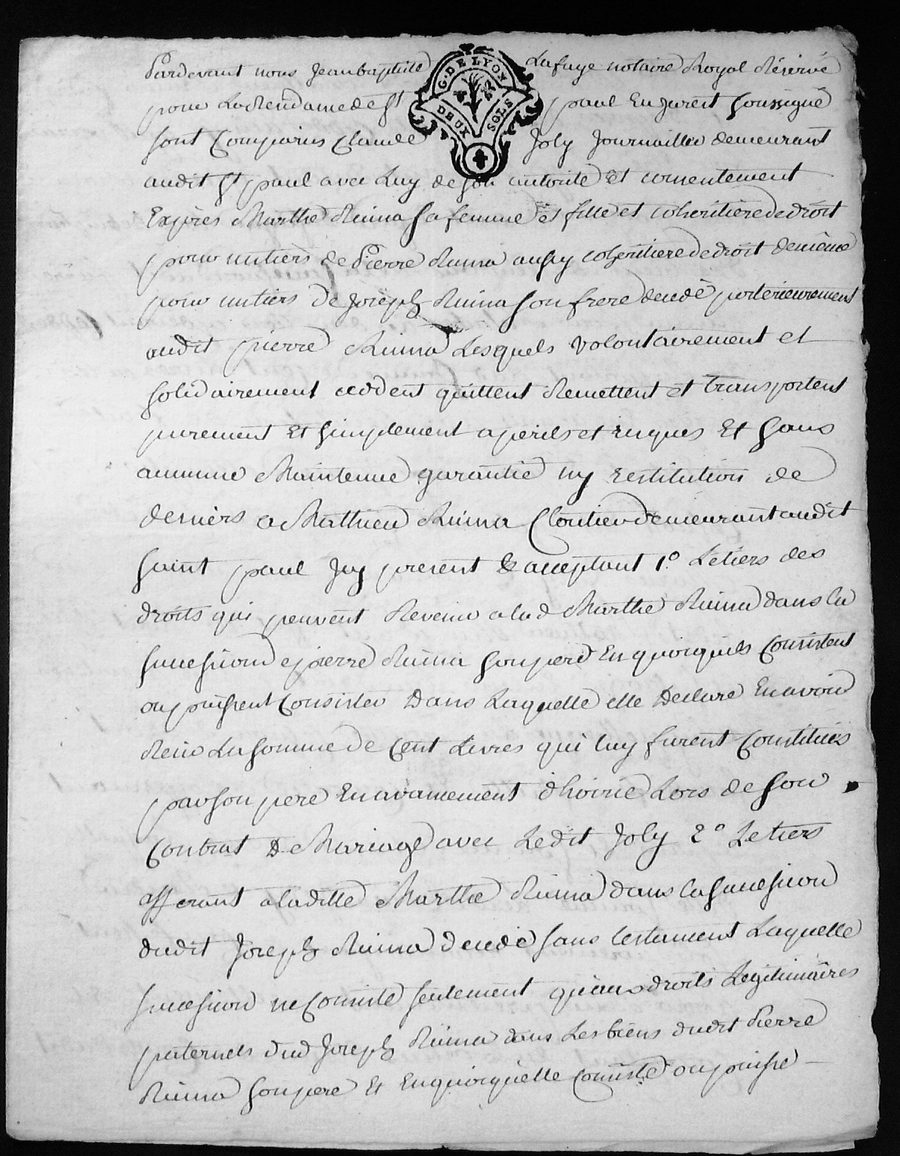 Pardevant nous Jean baptiste Lafuye notaire Royal Réservé
G. DE LYON
DEUX SOLS
pour La Rendame de St paul En Jarest soussigné
sont Comparus Claude Joly Journaillier demeurant
audit St paul avec Luy de son autorité et consentement
Exprès Marthe Ruina sa femme et fille et cohéritiere de droit
pour un tiers de Pierre Ruina aussy cohéritiere de droit de même
pour un tiers de Joseph Ruina son frere decedé posterieurement
audit pierre Ruina Lesquels volontairement et
solidairement ceddent quittent Remettent et transportent
purement Et simplement a perils et risques Et sans
aucune Maintenue garantie ny restitution de
deniers a Mathieu Ruina Cloutier demeurant audit
saint paul Icy present & acceptant 1.o Le tiers des
droits qui peuvent Revenir a lad Marthe Ruina dans la
succession de pierre Ruina son pere En quoi quils Consistent
ou puissent Consister Dans Laquelle elle Declare En avoir
Reçu La somme de Cent Livres qui luy furent Constitués
par son pere En avancement d'hoirie Lors de son
Contrat De Mariage avec Ledit Joly 2.o Le tiers
afferant a laditte Marthe Ruina dans la succession
dudit Joseph Ruina decedé sans testament Laquelle
succession ne Consiste seulement qu'aux droits Legitimaires
paternels dud Joseph Ruina dans Les biens dudit Pierre
Ruina son pere Et En quoi quelle Consiste ou puisse